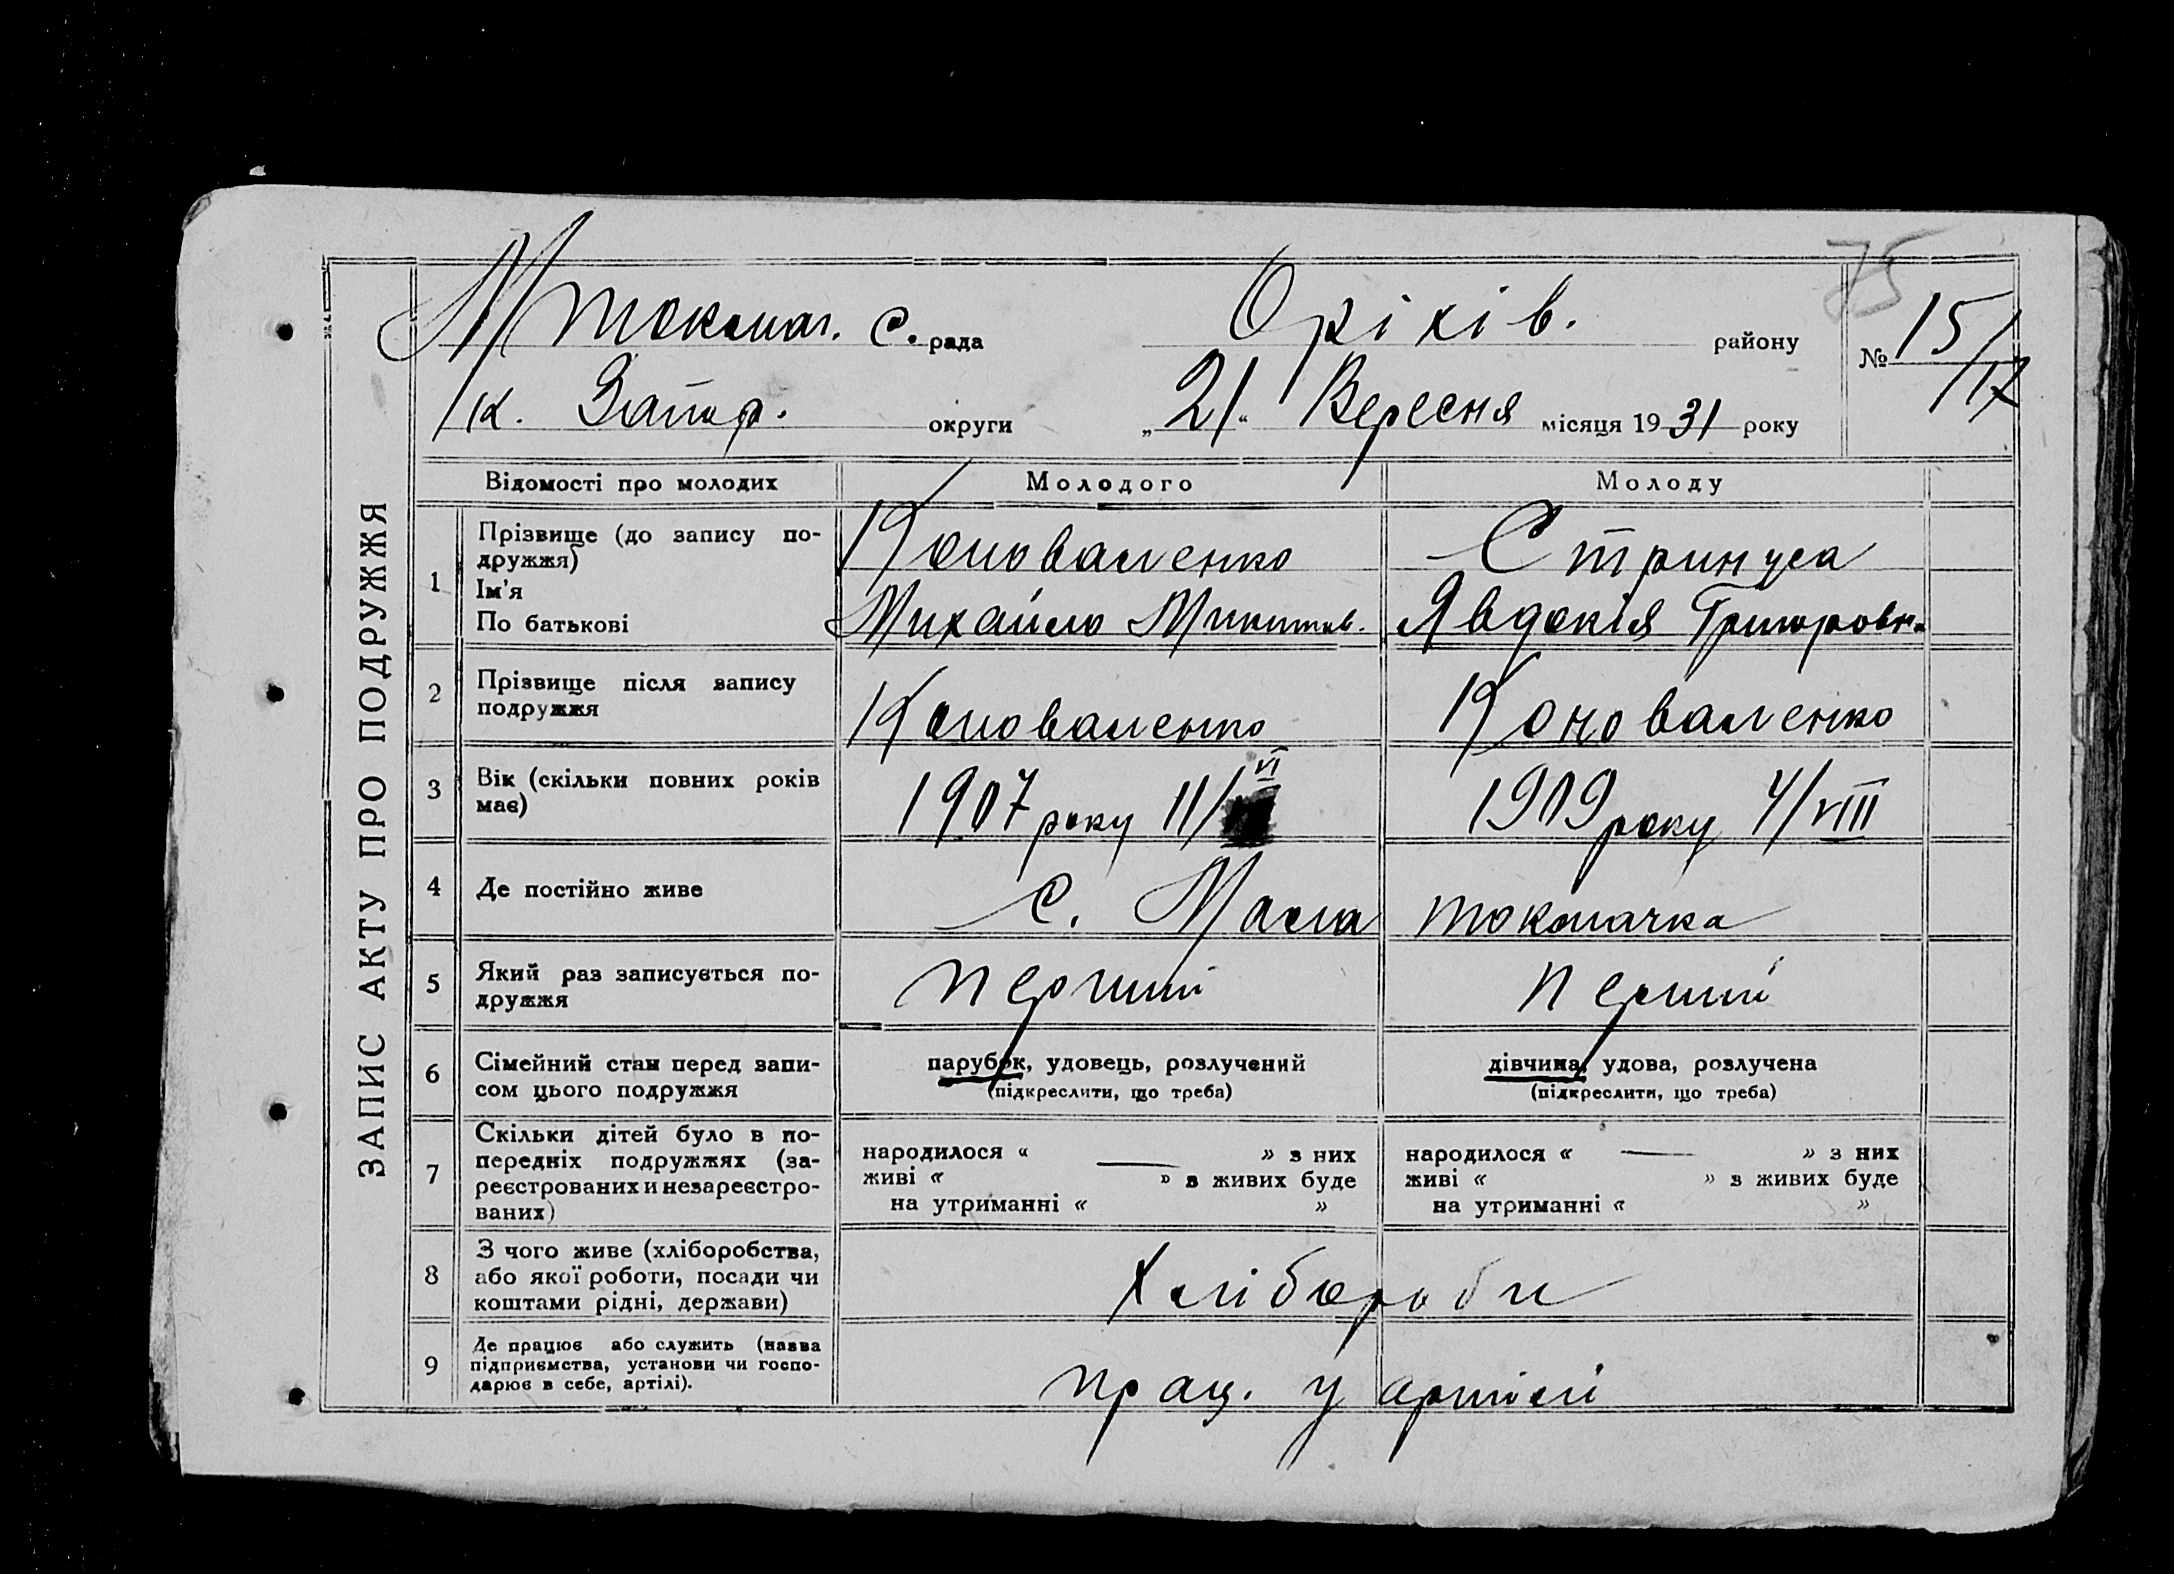 75
М/Токмач. с. рада Оріхів. району № 15/17
к. Запор. округи „21“ Вересня місяця 1931 року
ЗАПИС АКТУ ПРО ПОДРУЖЖЯ
Відомості про молодих Молодого Молоду
1 Прізвище (до запису по-
дружжя) Коноваленко
Ім'я
По батькові Михайло Микитов. Явдокія Григоровн.
2 Прізвище після запису
подружжя Коноваленко Коноваленко
3 Вік (скільки повних років
має) 1907 року 11/VI 1909 року 4/VIII
4 Де постійно живе с. Мала токмачка
5 Який раз записується по-
дружжя перший перший
6 Сімейний стан перед запи-
сом цього подружжя
парубок, удовець, розлучений дівчина, удова, розлучена
(підкреслити, що треба) (підкреслити, що треба)
7 Скільки дітей було в по-
передніх подружжях (за-
реєстрованих и незареєстро-
ваних)
народилося « — » з них народилося « — » з них
живі « » з живих буде живі « » з живих буде
на утриманні « » на утриманні « »
8 З чого живе (хліборобства,
або якої роботи, посади чи
коштами рідні, держави) Хлібороби
9 Де працює або служить (назва
підприємства, установи чи госпо-
дарює в себе, артілі). прац. у артілі